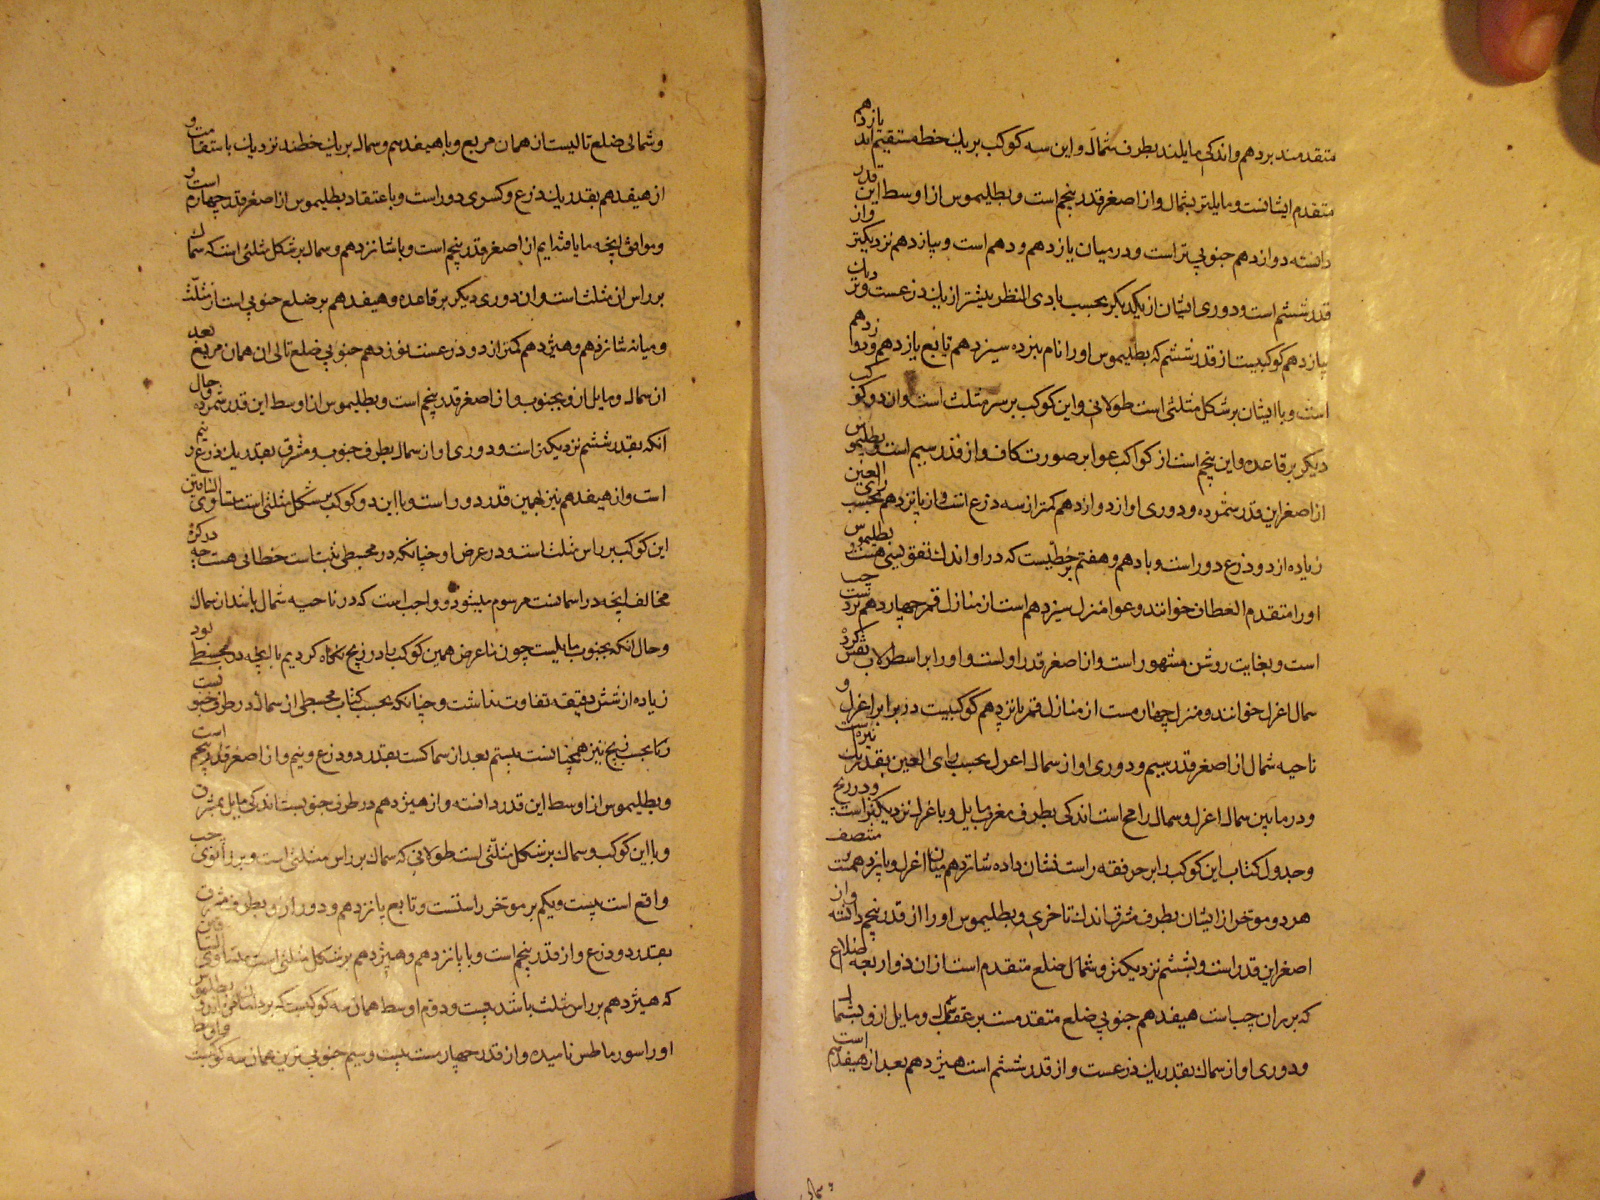 متقدمند بر دهم و اندکی مایلند بطرف شمال و این سه کوکب بر یک خط مستقیم اند یازدهم
متقدم ایشانست و مایلتر بشمال و از اصغر قدر پنجم است و بطلیموس از اوسط این قدر
دانسته دوازدهم جنوبی تر است و در میان یازدهم و دهم است و بیازدهم نزدیکتر و از
قدر ششم است و دوری ایشان از یکدیکر بحسب بادی النظر بیشتر از یک ذرعست و نزدیک
یازدهم کوکبیست از قدر ششم که بطلیموس او را نام نبرده سیزدهم تابع یازدهم و دوازدهم
است و با ایشان بر شکل مثلثی است طولانی و این کوکب بر سر مثلث است و ان دو کوکب
دیکر بر قاعده و این پنجم است از کواکب عوا بر صورت کاف و از قدر سیم است و بطلیموس
از اصغر این قدر شمرده و دوری او از دوازدهم کمتر از سه ذرع است و از پانزدهم بحسب رای العین
زیاده از دو ذرع دور است و با دهم و هفتم بر خطیست که در او اندک تقویسی هست بطلیموس
او را متقدم القطاف خوانند و عوا منزل سیزدهم است از منازل قمر چهاردهم بر دست چپ
است و بغایت روشن مشهور است و از اصغر قدر اولست و او را بر اسطرلاب نقش کرده
سماک اعزل خوانند و منزل چهاردهمست از منازل قمر پانزدهم کوکبیست در برابر اعزل و
ناحیه شمال از اصغر قدر سیم و دوری او از سماک اعزل بحسب رای العین بقدر یک نیزه است
و در مابین سماک اعزل و سماک رامح است اندکی بطرف مغرب مایل و با اعزل نزدیکتر است و در زیج
و جدول کتاب این کوکب را بر حرقفه راست نشان داده شانزدهم میان اعزل و پانزدهم است منتصف
هر دو موخر از ایشان بطرف مشرق اندک تاخری و بطلیموس او را از قدر پنجم دانسته و از
اصغر این قدر است و بششم نزدیکتر و شمال ضلع متقدم است از ان ذو اربعه اضلاع
که بر ران چپ است هیفدهم جنوبی ضلع متقدمست بر عقب شمال و مایل ازو بشمال
و دوری او از سماک بقدر یک ذرعست و از قدر ششم است هیژدهم بعد از هیفدهم است
شمالی
و شمالی ضلع تالیست از همان مربع و با هیفدهم و سماک بر یک خطند نزدیک باستقامت و
از هیفدهم بقدر یک ذرع و کسری دور است و باعتقاد بطلیموس از اصغر قدر چهارم است و
و موافق انچه ما یافته ایم از اصغر قدر پنجم است و با شانزدهم و سماک بر شکل مثلثی است که سماک
بر راس ان مثلث است و ان دوری دیکر بر قاعده و هیفدهم بر ضلع جنوبی است از مثلث
و میانه شانزدهم و هیژدهم کمتر از دو ذرعست نوزدهم جنوبی ضلع تالی ان همان مربع بعد
از سماک و مایل ازو بجنوب و از اصغر قدر پنجم است و بطلیموس از اوسط این قدر شمرده و حال
انکه بقدر ششم نزدیکتر است و دوری او از سماک بطرف جنوب و مشرق بقدر یک ذرع و نیم
است و از هیفدهم نیز بهمین قدر دور است و با این دو کوکب بر شکل مثلثی است متساوی الساقین
این کوکب بر راس مثلث است و در عرض او چنانکه در مجسطی ثبت است خطائی هست چه در کره
مخالف انچه در اسمانست مرسوم میشود و واجب است که در ناحیه شمال باشد از سماک
و حال انکه بجنوب مایلست چون ما عرض همین کوکب را در زیج نکاه کردیم با انچه در مجسطی بود
زیاده از شش دقیقه تفاوت نداشت و چنانکه بحسب کتاب مجسطی از سماک در طرف جنوبست
و بحسب زیج نیز همچنانست بیستم بعد از سماکست بقدر دو ذرع و نیم و از اصغر قدر پنجم است
و بطلیموس از اوسط این قدر دانسته و از هیژدهم در طرف جنوبست اندکی مایل بمشرق
و با این کوکب و سماک بر شکل مثلثی است طولانی که سماک بر راس مثلثی است و بر زانوی چپ
واقع است بیست و یکم بر موخر راستست و تابع پانزدهم و دور ازو بطرف مشرق
بقدر دو ذرع و از قدر پنجم است و با پانزدهم و هیژدهم بر شکل مثلثی است متساوی الساقین
که هیژدهم بر راس مثلث باشد بیست و دوم اوسط همان سه کوکبست که بر دامنست بطلیموس
او را سورماطس نامیده و از قدر چهارمست بیست و سیم جنوبی ترین همان سه کوکبست و اوسط